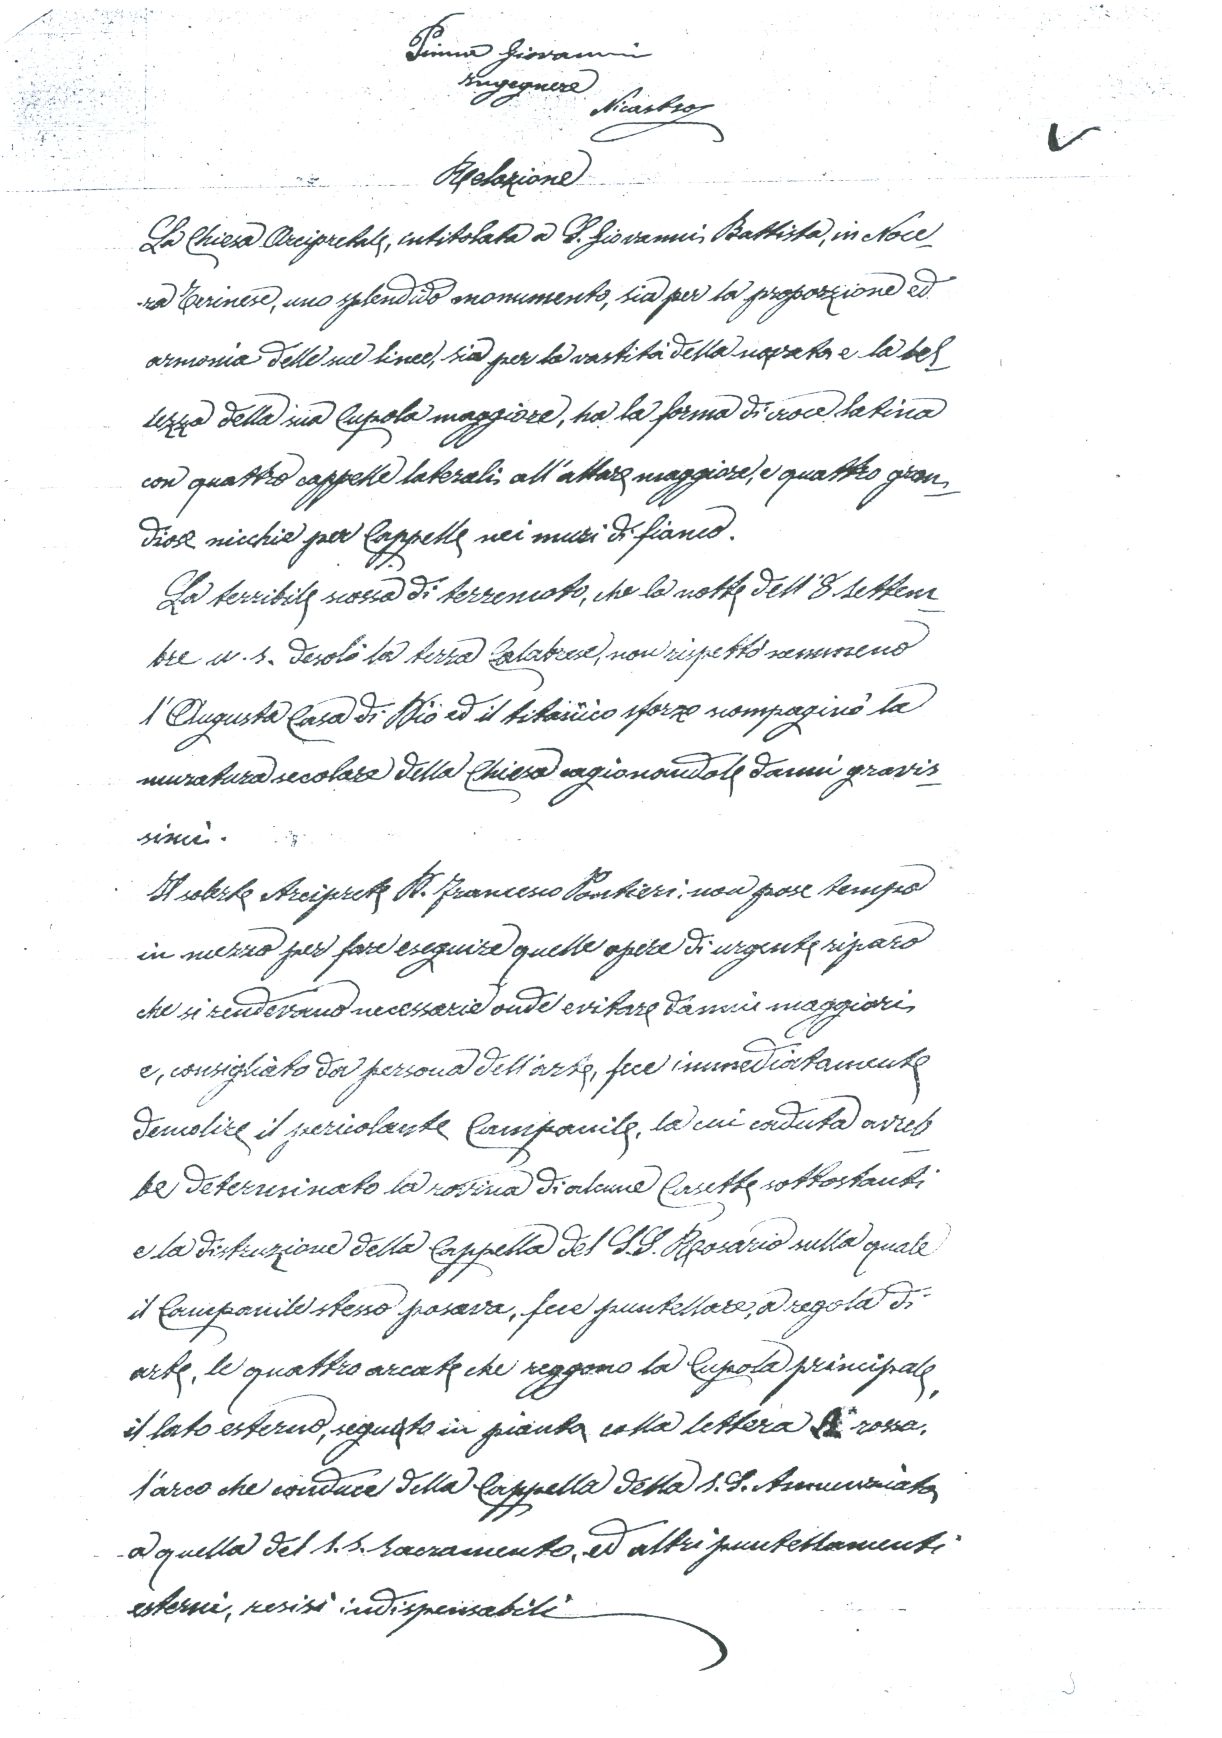 Pinna Giovanni
Ingegnere
Nicastro
Relazione
La Chiesa Arcipretale, intitolata a S. Giovanni Battista, in Noce_
ra Terinese, uno splendido monumento, sia per la proporzione ed
armonia delle sue linee, sia per la vastità della navata e la bel_
lezza della sua Cupola maggiore, ha la forma di croce latina
con quattro cappelle laterali all'altare maggiore, e quattro gran_
diose nicchie per Cappelle nei muri di fianco.
La terribile scossa di terremoto, che la notte dell'8 Settem_
bre u. s. desolò la terra Calabrese, non rispettò nemmeno
l'Augusta Casa di Dio ed il titanico sforzo scompaginò la
muratura secolare della Chiesa cagionandole danni gravis_
simi.
Il solerte Arciprete D. Francesco Pontieri non pose tempo
in mezzo per fare eseguire quelle opere di urgente riparo
che si rendevano necessarie onde evitare danni maggiori
e, consigliato da persona dell'arte, fece immediatamente
demolire il pericolante Campanile, la cui caduta avreb_
be determinato la rovina di alcune Casette sottostanti
e la distruzione della Cappella del S.S. Rosario sulla quale
il Campanile stesso posava, fece puntellare, a regola di
arte, le quattro arcate che reggono la Cupola principale,
il lato esterno, segnato in pianta colla lettera A rossa,
l'arco che conduce della Cappella della S.S. Annunziata
a quella del S.S. Sacramento, ed altri puntellamenti
esterni, resisi indispensabili